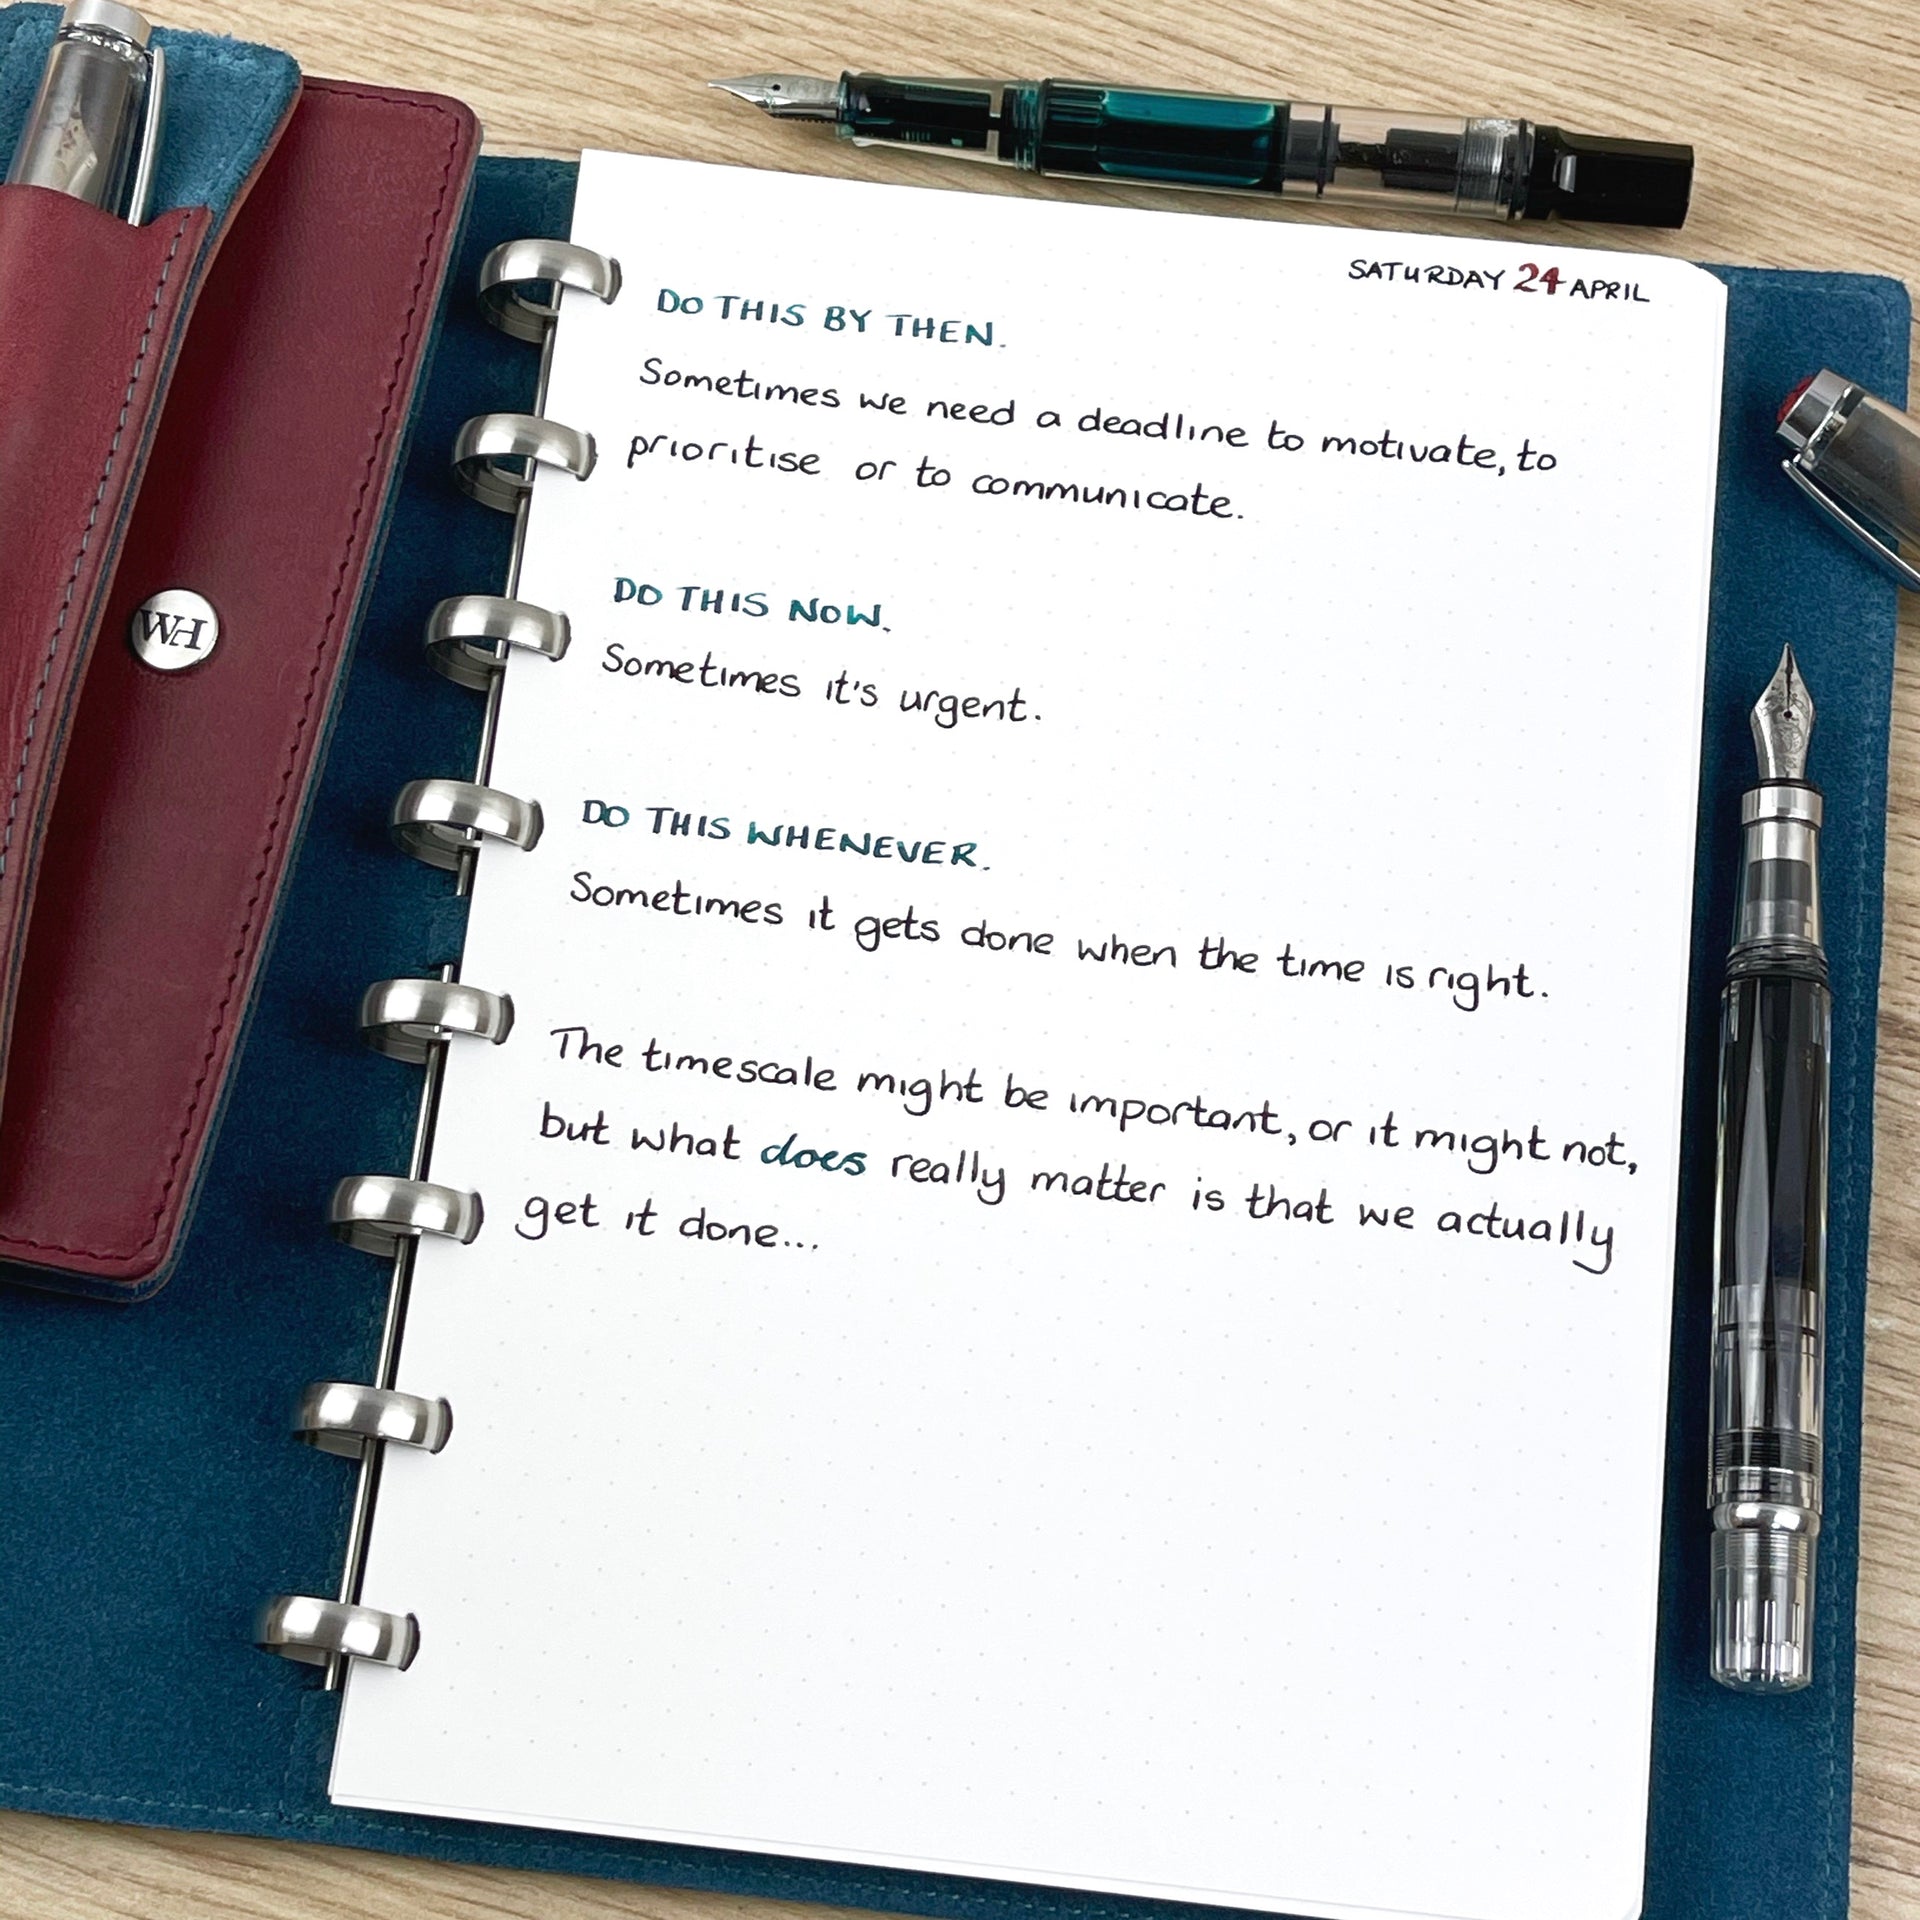 SATURDAY 24 APRIL
DO THIS BY THEN.
Sometimes we need a deadline to motivate, to
prioritise or to communicate.
DO THIS NOW.
Sometimes it's urgent.
DO THIS WHENEVER.
Sometimes it gets done when the time is right.
The timescale might be important, or it might not,
but what does really matter is that we actually
get it done...
WH